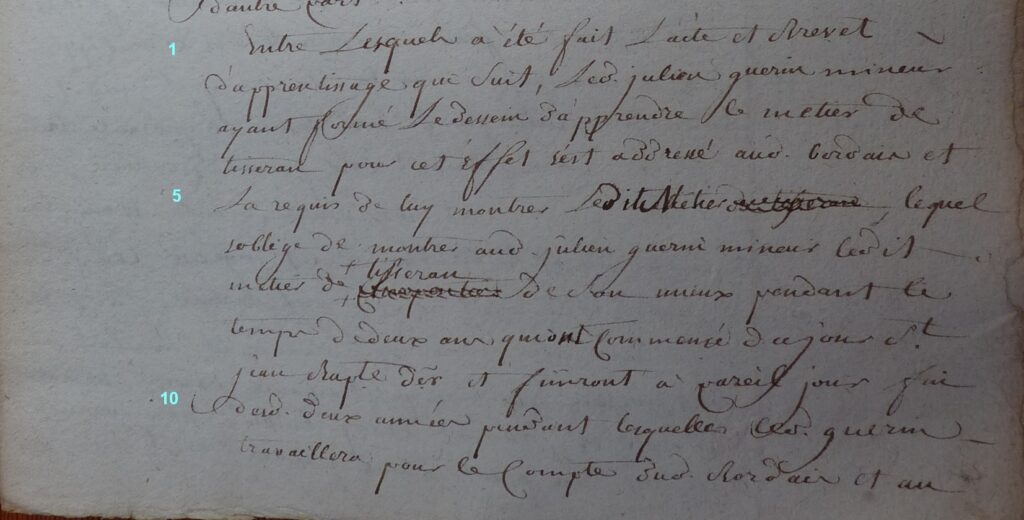 d'autre part
1 Entre Lesquels a été fait L'acte et Brevet
d'apprentissage que suit, Led. julien guerin mineur
ayant formé Le dessein d'apprendre le metier de
tisseran pour cet Effet s'est addressé aud. bordais et
5 La requis de luy montrer Ledit Metier de tisseran, lequel
soblége de montrer aud. julien guerin mineur ledit
tisseran
metier de charpentier de Son mieux pendant le
temps de deux ans qui ont Commencé du jour St.
jean Bapte. der et finiront a pareil jour fin
10 desd. deux années pendant lesquelles led. guerin
travaillera pour le Compte dud. Bordais et au